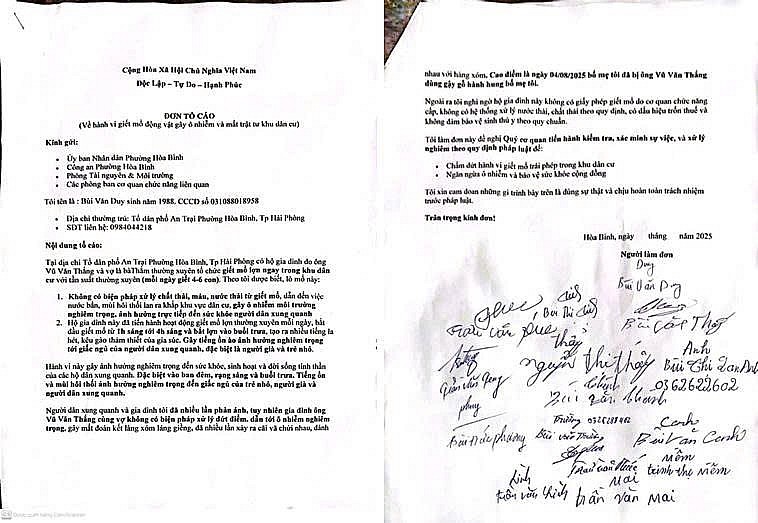 Cộng Hòa Xã Hội Chủ Nghĩa Việt Nam
Độc Lập – Tự Do – Hạnh Phúc
ĐƠN TỐ CÁO
(Về hành vi giết mổ động vật gây ô nhiễm và mất trật tự khu dân cư)
Kính gửi:
• Ủy ban Nhân dân Phường Hòa Bình
• Công an Phường Hòa Bình
• Phòng Tài nguyên & Môi trường
• Các phòng ban cơ quan chức năng liên quan
Tôi tên là : Bùi Văn Duy sinh năm 1988. CCCD số 031088018958
• Địa chỉ thường trú: Tổ dân phố An Trại Phường Hòa Bình, Tp Hải Phòng
• SĐT liên hệ: 0984044218
Nội dung tố cáo:
Tại địa chỉ Tổ dân phố An Trại Phường Hòa Bình, Tp Hải Phòng có hộ gia đình do ông
Vũ Văn Thắng và vợ là bàThắm thường xuyên tổ chức giết mổ lợn ngay trong khu dân
cư với tần suất thường xuyên (mỗi ngày giết 4-6 con). Theo tôi được biết, lò mổ này:
1. Không có biện pháp xử lý chất thải, máu, nước thải từ giết mổ, dẫn đến việc
nước bẩn, mùi hôi thối lan ra khắp khu vực dân cư, gây ô nhiễm môi trường
nghiêm trọng, ảnh hưởng trực tiếp đến sức khỏe người dân xung quanh
2. Hộ gia đình này đã tiến hành hoạt động giết mổ lợn thường xuyên mỗi ngày, bắt
đầu giết mổ từ 1h sáng tới 4h sáng và bắt lợn vào buổi trưa, tạo ra nhiều tiếng la
hét, kêu gào thảm thiết của gia súc. Gây tiếng ồn ào ảnh hưởng nghiêm trọng
tới giấc ngủ của người dân xung quanh, đặc biệt là người già và trẻ nhỏ.
Hành vi này gây ảnh hưởng nghiêm trọng đến sức khỏe, sinh hoạt và đời sống tinh thần
của các hộ dân xung quanh. Đặc biệt vào ban đêm, rạng sáng và buổi trưa. Tiếng ồn
và mùi hôi thối ảnh hưởng nghiêm trọng đến giấc ngủ của trẻ nhỏ, người già và
người dân xung quanh.
Người dân xung quanh và gia đình tôi đã nhiều lần phản ánh, tuy nhiên gia đình ông
Vũ Văn Thắng cùng vợ không có biện pháp xử lý dứt điểm. dẫn tới ô nhiễm nghiêm
trọng, gây mất đoàn kết làng xóm láng giềng, đã nhiều lần xảy ra cãi vã chửi nhau, đánh
nhau với hàng xóm, Cao điểm là ngày 04/08/2025 bố mẹ tôi đã bị ông Vũ Văn Thắng
dùng gậy gỗ hành hung bố mẹ tôi.
Ngoài ra tôi nghi ngờ hộ gia đình này không có giấy phép giết mổ do cơ quan chức năng
cấp, không có hệ thống xử lý nước thải, chất thải theo quy định, có dấu hiệu trốn thuế và
không đảm bảo vệ sinh thú y theo quy chuẩn.
Tôi làm đơn này đề nghị Quý cơ quan tiến hành kiểm tra, xác minh sự việc, và xử lý
nghiêm theo quy định pháp luật để:
• Chấm dứt hành vi giết mổ trái phép trong khu dân cư
• Ngăn ngừa ô nhiễm và bảo vệ sức khỏe cộng đồng
Tôi xin cam đoan những gì trình bày trên là đúng sự thật và chịu hoàn toàn trách nhiệm
trước pháp luật.
Trân trọng kính đơn!
Hòa Bình, ngày tháng năm 2025
Người làm đơn
Duy
Bùi Văn Duy
Bùi Thị
Trần Văn
Thấy
Nguyễn Thị Thấy
Anh
Bùi Thị Lan Anh
0362622602
Bùi Văn Thanh
Phương
Trường
Bùi Văn Trường
Canh
Bùi Văn Canh
Mềm
Trịnh Thị Mềm
Mai
Trần Văn Mai
Trần Văn